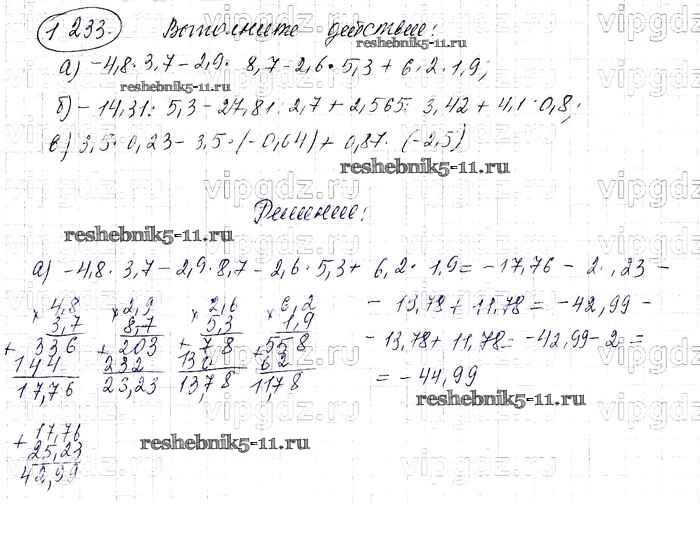 1233. Выполните действие:
reshebnik5-11.ru
vipgdz.ru
а) -4,8·3,7-2,9·8,7-2,6·5,3+6·2·1,9;
reshebnik5-11.ru
б) -14,31:5,3-27,81:2,7+2,565:3,42+4,1·0,8;
в) 3,5·0,23-3,5·(-0,64)+0,87·(-2,5)
reshebnik5-11.ru
vipgdz.ru
Решение:
reshebnik5-11.ru
а) -4,8·3,7-2,9·8,7-2,6·5,3+6,2·1,9=-17,76-2.,23-
-13,78+11,78=-42,99-
-13,78+11,78=-42,99-2=
=-44,99
× 4,8 × 2,9 × 2,6 × 6,2
3,7 8,7 5,3 1,9
+ 336 + 203 + 78 + 558
144 232 130 62
17,76 23,23 13,78 11,78
reshebnik5-11.ru
vipgdz.ru
+ 17,76
25,23
42,99
reshebnik5-11.ru
vipgdz.ru